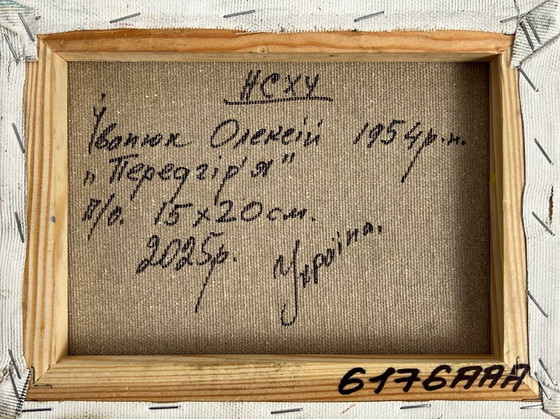 НСХУ
Іванюк Олексій 1954р.н.
„Передгір'я"
п/о. 15х20см.
2025р. Україна.
6176ААА